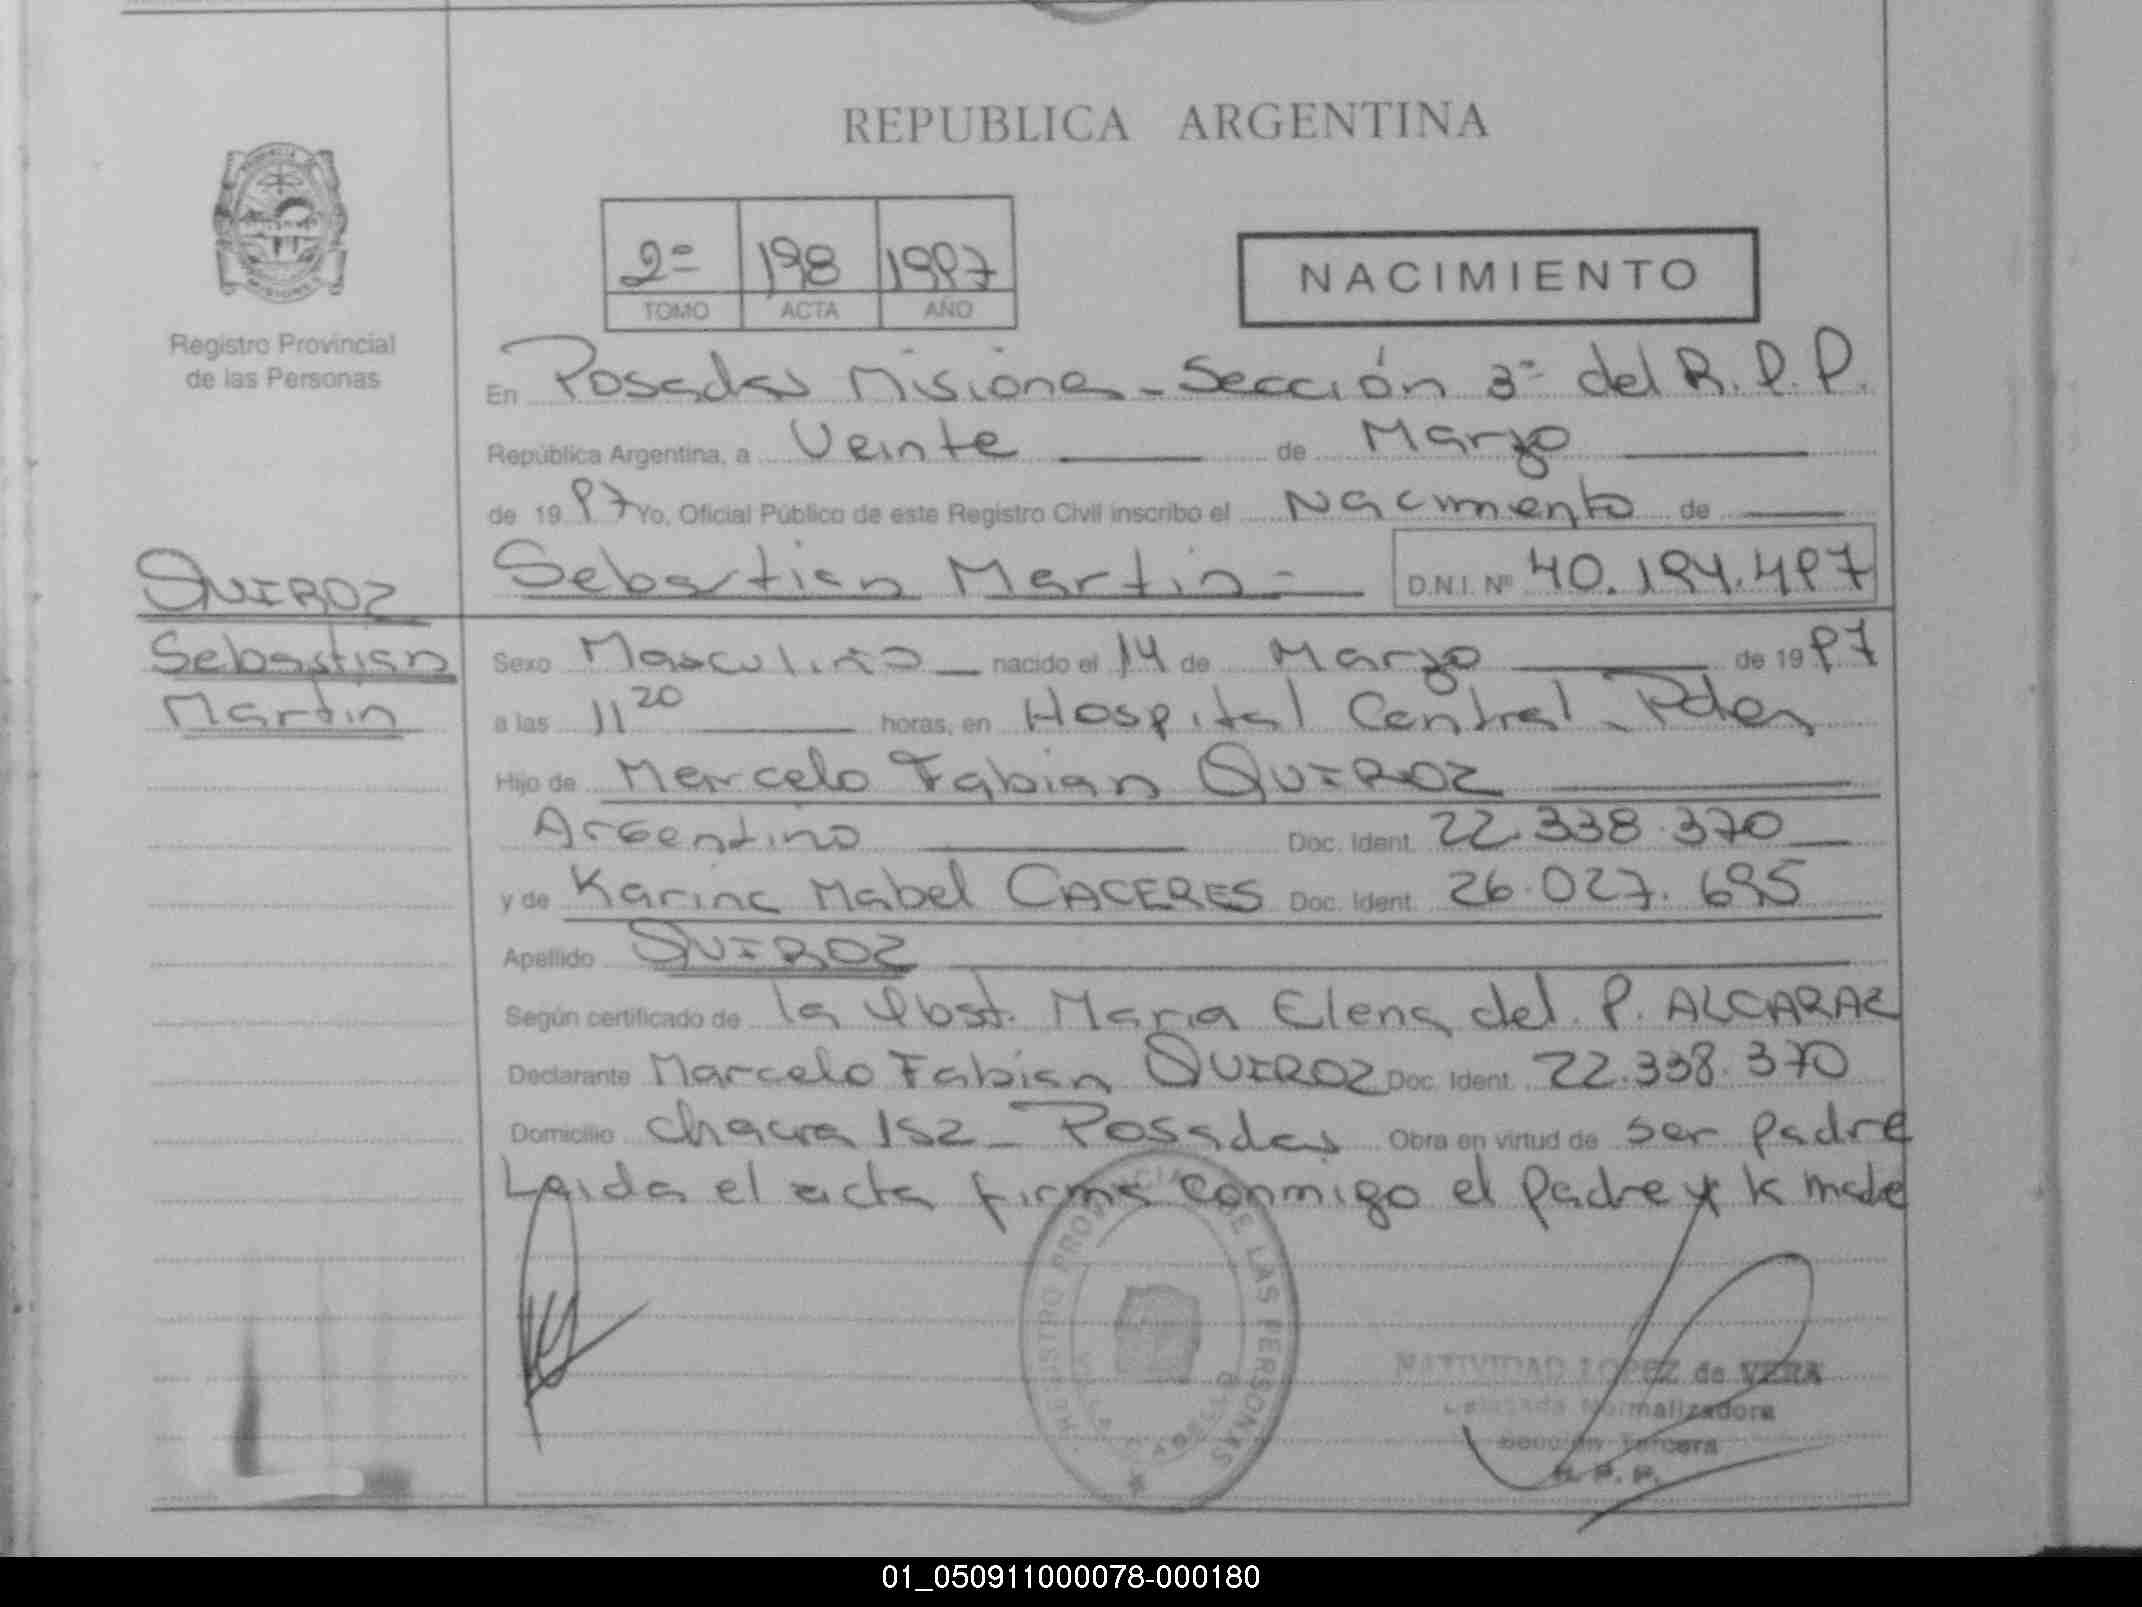 REPUBLICA ARGENTINA
Registro Provincial
de las Personas
2º 198 1997
TOMO ACTA AÑO
NACIMIENTO
En Posadas Misiones - Sección 3º del R.P.P.
República Argentina, a Veinte de Marzo
de 1997 Yo, Oficial Público de este Registro Civil inscribo el Nacimiento de
Sebastian Martin = D.N.I. Nº 40.194.497
QUIROZ
Sebastian
Martin
Sexo Masculino nacido el 14 de Marzo de 1997
a las 11 20 horas, en Hospital Central - Pdas
Hijo de Marcelo Fabian QUIROZ
Argentino Doc. Ident. 22.338.370
y de Karina Mabel CACERES Doc. Ident. 26.027.695
Apellido QUIROZ
Según certificado de la Obst. Maria Elena del P. ALCARAZ
Declarante Marcelo Fabian QUIROZ Doc. Ident. 22.338.370
Domicilio chacra 152 - Posadas Obra en virtud de ser padre
Leida el acta firma conmigo el padre y la madre
REGISTRO PROVINCIAL DE LAS PERSONAS
NATIVIDAD LOPEZ de VERA
Delegada Normalizadora
Sección Tercera
R. P. P.
01_050911000078-000180